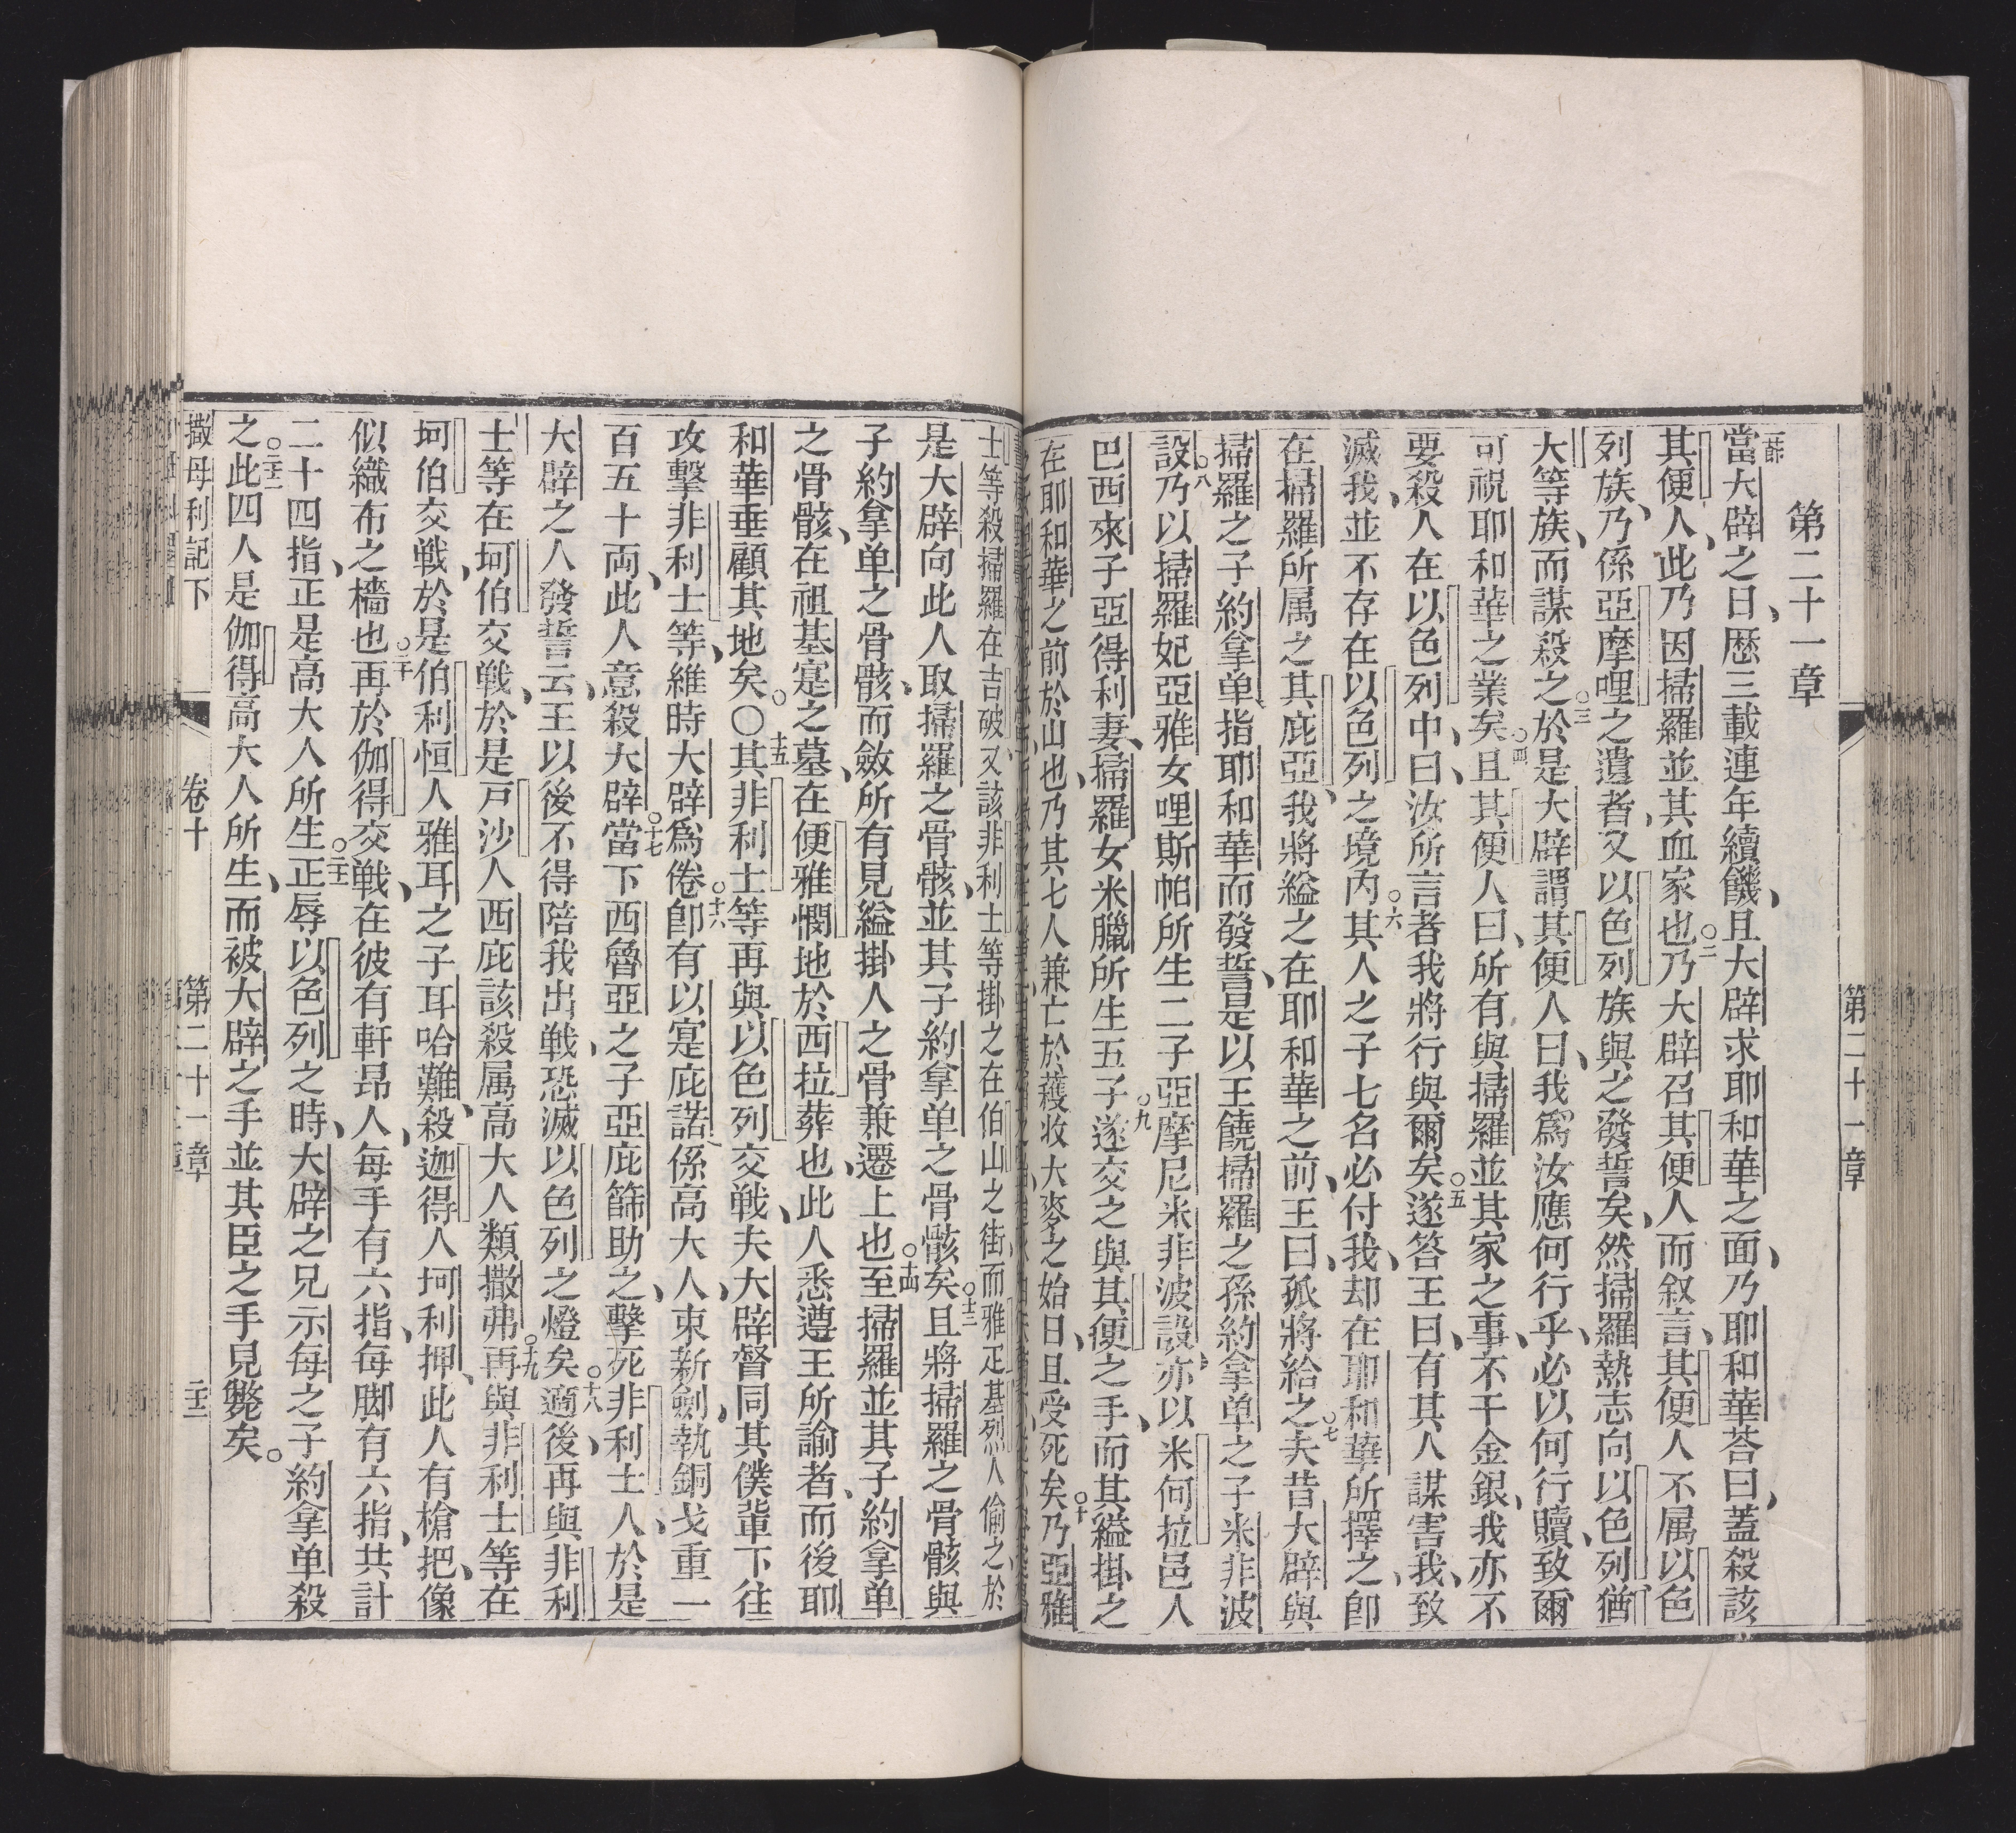 第二十一章
一節當大辟之日、歷三載連年續饑、且大辟求耶和華之面、乃耶和華荅曰、蓋殺該
其便人、此乃因掃羅並其血家也○二乃大辟召其便人而叙言、其便人不属以色
列族、乃係亞摩哩之遺者、又以色列族與之發誓矣、然掃羅熱志向以色列猶
大等族、而謀殺之○三於是大辟謂其便人曰、我爲汝應何行乎、必以何行贖、致爾
可祝耶和華之業矣○四且其便人曰、所有與掃羅並其家之事、不干金銀、我亦不
要殺人在以色列中、曰、汝所言者我將行與爾矣○五遂答王曰、有其人謀害我、致
滅我、並不存在以色列之境內○六其人之子七名必付我、却在耶和華所擇之、卽
在掃羅所属之其庇亞、我將縊之在耶和華之前、王曰、孤將給之○七夫昔大辟與
掃羅之子約拿单指耶和華而發誓、是以王饒掃羅之孫約拿单之子米非波
設○八乃以掃羅妃亞雅女哩斯帕所生二子亞摩尼米非波設、亦以米何拉邑人
巴西來子亞得利妻、掃羅女米臘所生五子○九遂交之與其便之手、而其縊掛之
在耶和華之前於山也、乃其七人兼亡於穫收大麥之始日、且受死矣○十乃亞雅
士等殺掃羅在吉破又該非利士等掛之在伯山之街而雅疋基烈人偷之、於
是大辟向此人取掃羅之骨骸、並其子約拿单之骨骸矣○十三且將掃羅之骨骸與
子約拿单之骨骸、而斂所有見縊掛人之骨兼遷上也○十四至掃羅並其子約拿单
之骨骸、在祖基寔之墓、在便雅憫地於西拉葬也、此人悉遵王所諭者、而後耶
和華垂顧其地矣。〇十五其非利士等再與以色列交戦、夫大辟督同其僕軰下往
攻擊非利士等、維時大辟爲倦○十六卽有以寔庇諾係高大人、束新劍、執銅戈重一
百五十両、此人意殺大辟○十七當下西魯亞之子亞庇篩助之、擊死非利士人、於是
大辟之人發誓云、王以後不得陪我出戦、恐滅以色列之燈矣○十八適後、再與非利
士等在坷伯交戦、於是戸沙人西庇該殺属高大人類撒弗○十九再與非利士等在
坷伯交戦、於是伯利恒人雅耳之子耳哈難、殺迦得人坷利押、此人有槍把、像
似織布之檣也○二十再於伽得交戦、在彼有軒昂人、每手有六指、每脚有六指、共計
二十四指、正是高大人所生○二十一正辱以色列之時、大辟之兄示每之子約拿单殺
之○二十二此四人是伽得高大人所生、而被大辟之手並其臣之手見斃矣。
撒母利記下　卷十　第二十一章
第二十一章